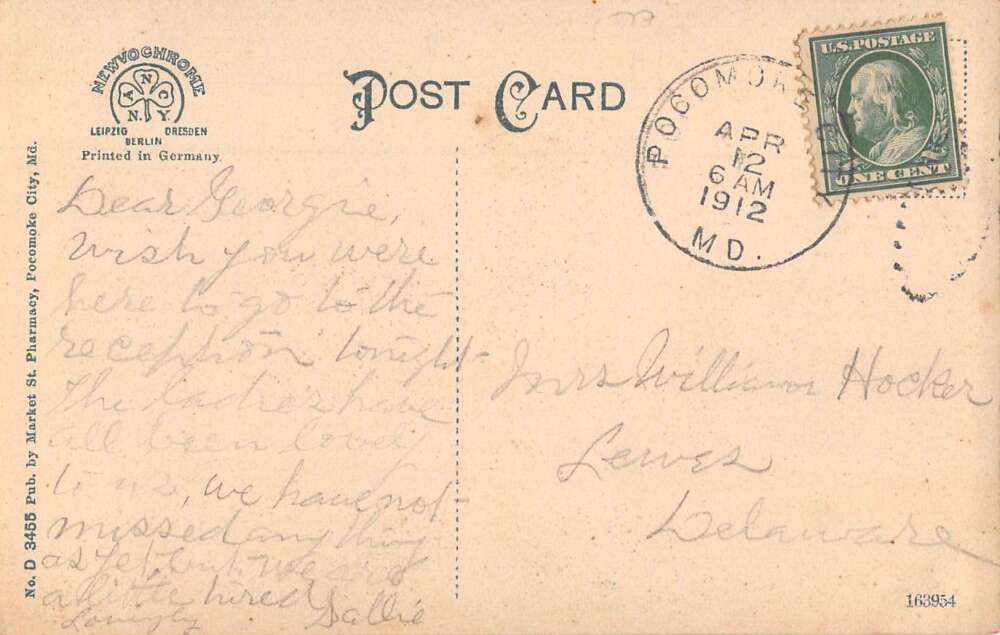 NEWVOCHROME
N
Y C
N. Y.
LEIPZIG DRESDEN
BERLIN
Printed in Germany.
POST CARD
POCOMOKE
APR
12
6 AM
1912
MD.
U.S. POSTAGE
ONE CENT
No. D 3455 Pub. by Market St. Pharmacy, Pocomoke City, Md.
Dear Georgie,
wish you were
here to go to the
reception tonight
The ladies have
all been lovely
to us, we have not
missed anything
as yet, but we are
a little tired
Lovingly Sallie
Mrs William Hocker
Lewes
Delaware
163954